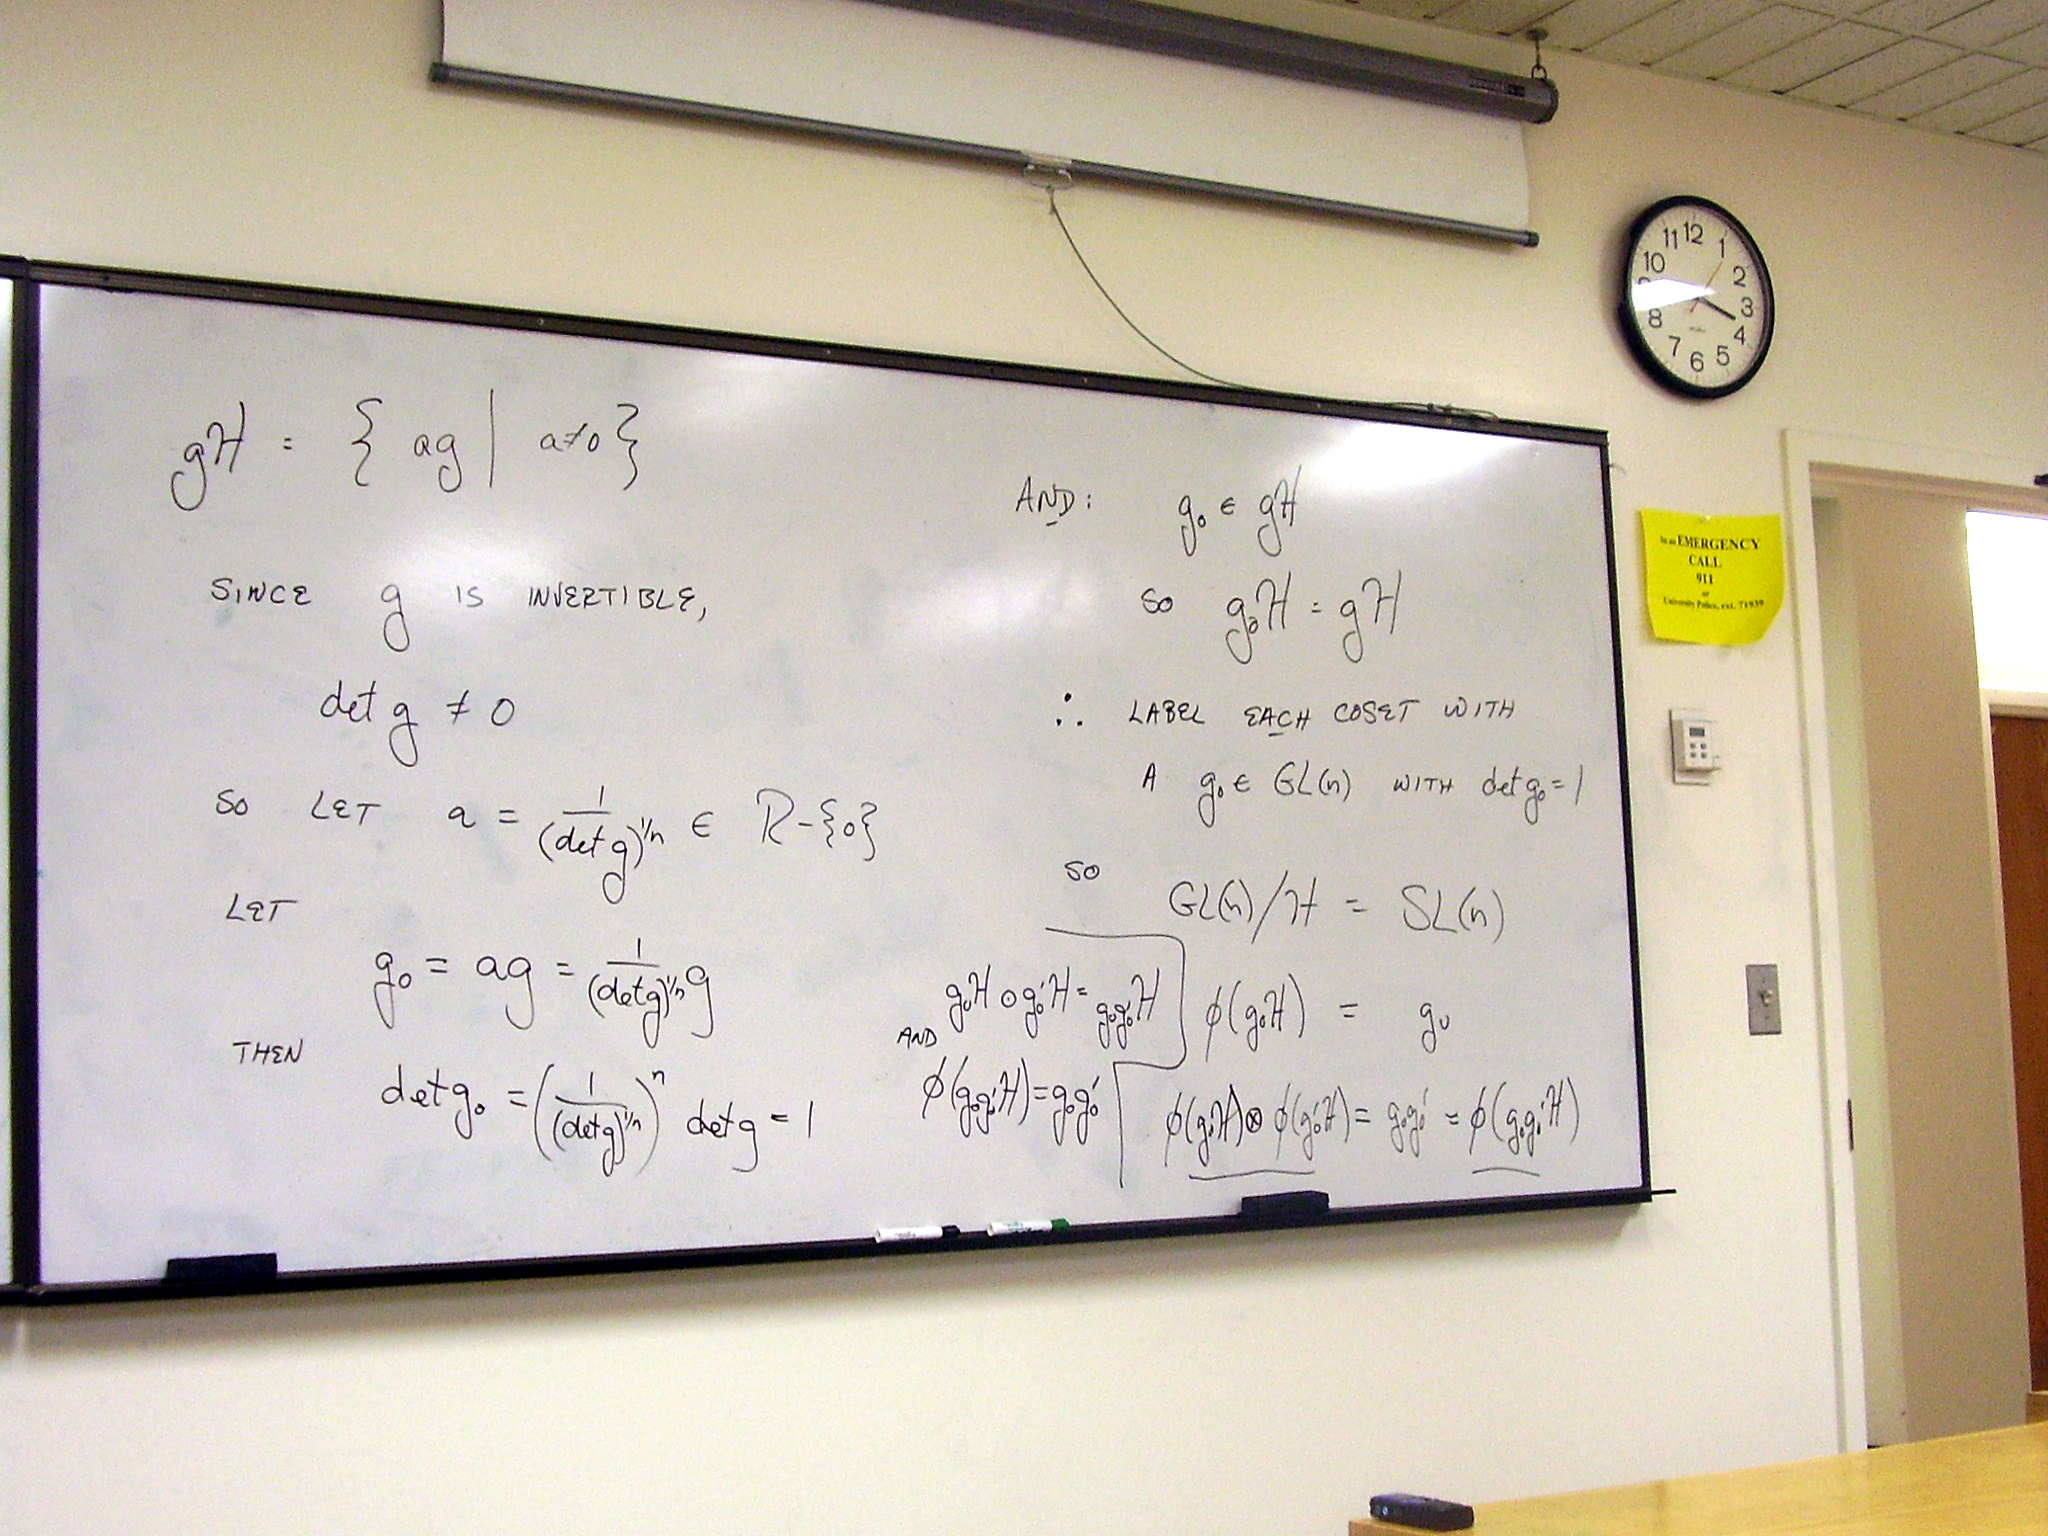 gH = { ag | a≠0 }
SINCE g IS INVERTIBLE,
det g ≠ 0
SO LET a = 1/(det g)^1/n ∈ R-{0}
LET
g₀ = ag = 1/(det g)^1/n g
THEN
det g₀ = (1/(det g)^1/n)^n det g = 1
AND: g₀ ∈ gH
SO g₀H = gH
∴ LABEL EACH COSET WITH
A g₀ ∈ GL(n) WITH det g₀ = 1
SO
GL(n)/H = SL(n)
g₀H ⊙ g₀'H = g₀g₀'H
AND
ϕ(g₀g₀'H) = g₀g₀'
ϕ(g₀H) = g₀
ϕ(g₀H) ⊗ ϕ(g₀'H) = g₀g₀' = ϕ(g₀g₀'H)
11 12 1
10 2
3
8 4
7 6 5
In an EMERGENCY
CALL
911
or
University Police, ext. 71939